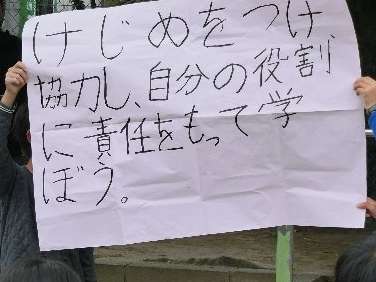 けじめをつけ
協力し、自分の役割
に責任をもって学
ぼう。